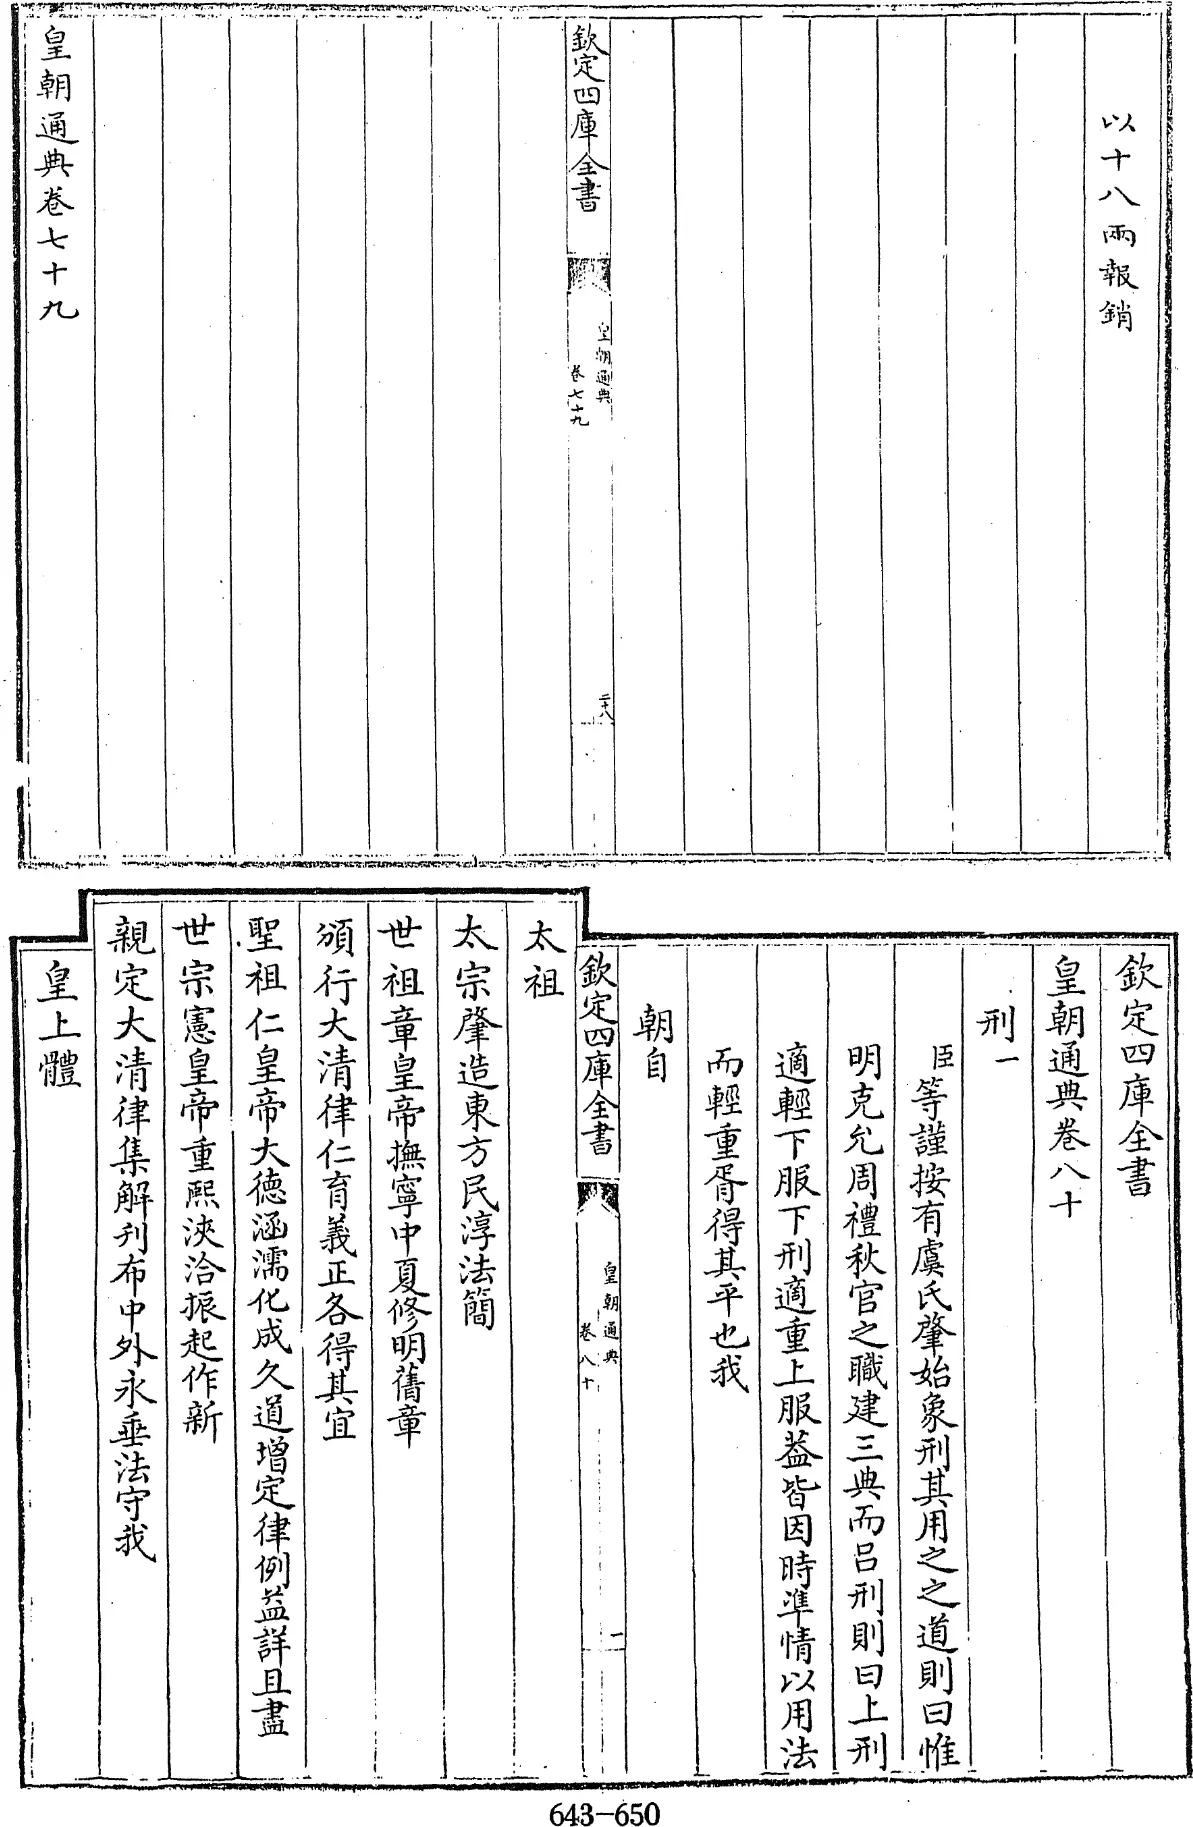 以十八兩報銷
欽定四庫全書
皇朝通典
卷七十九
二十八
皇朝通典卷七十九
欽定四庫全書
皇朝通典卷八十
刑一
臣等謹按有虞氏肇始象刑其用之之道則曰惟
明克允周禮秋官之職建三典而呂刑則曰上刑
適輕下服下刑適重上服葢皆因時準情以用法
而輕重胥得其平也我
朝自
欽定四庫全書
皇朝通典
卷八十
一
太祖
太宗肇造東方民淳法簡
世祖章皇帝撫寧中夏修明舊章
頒行大清律仁育義正各得其宜
聖祖仁皇帝大德涵濡化成久道增定律例益詳且盡
世宗憲皇帝重熙浹洽振起作新
親定大清律集解刋布中外永垂法守我
皇上體
643-650